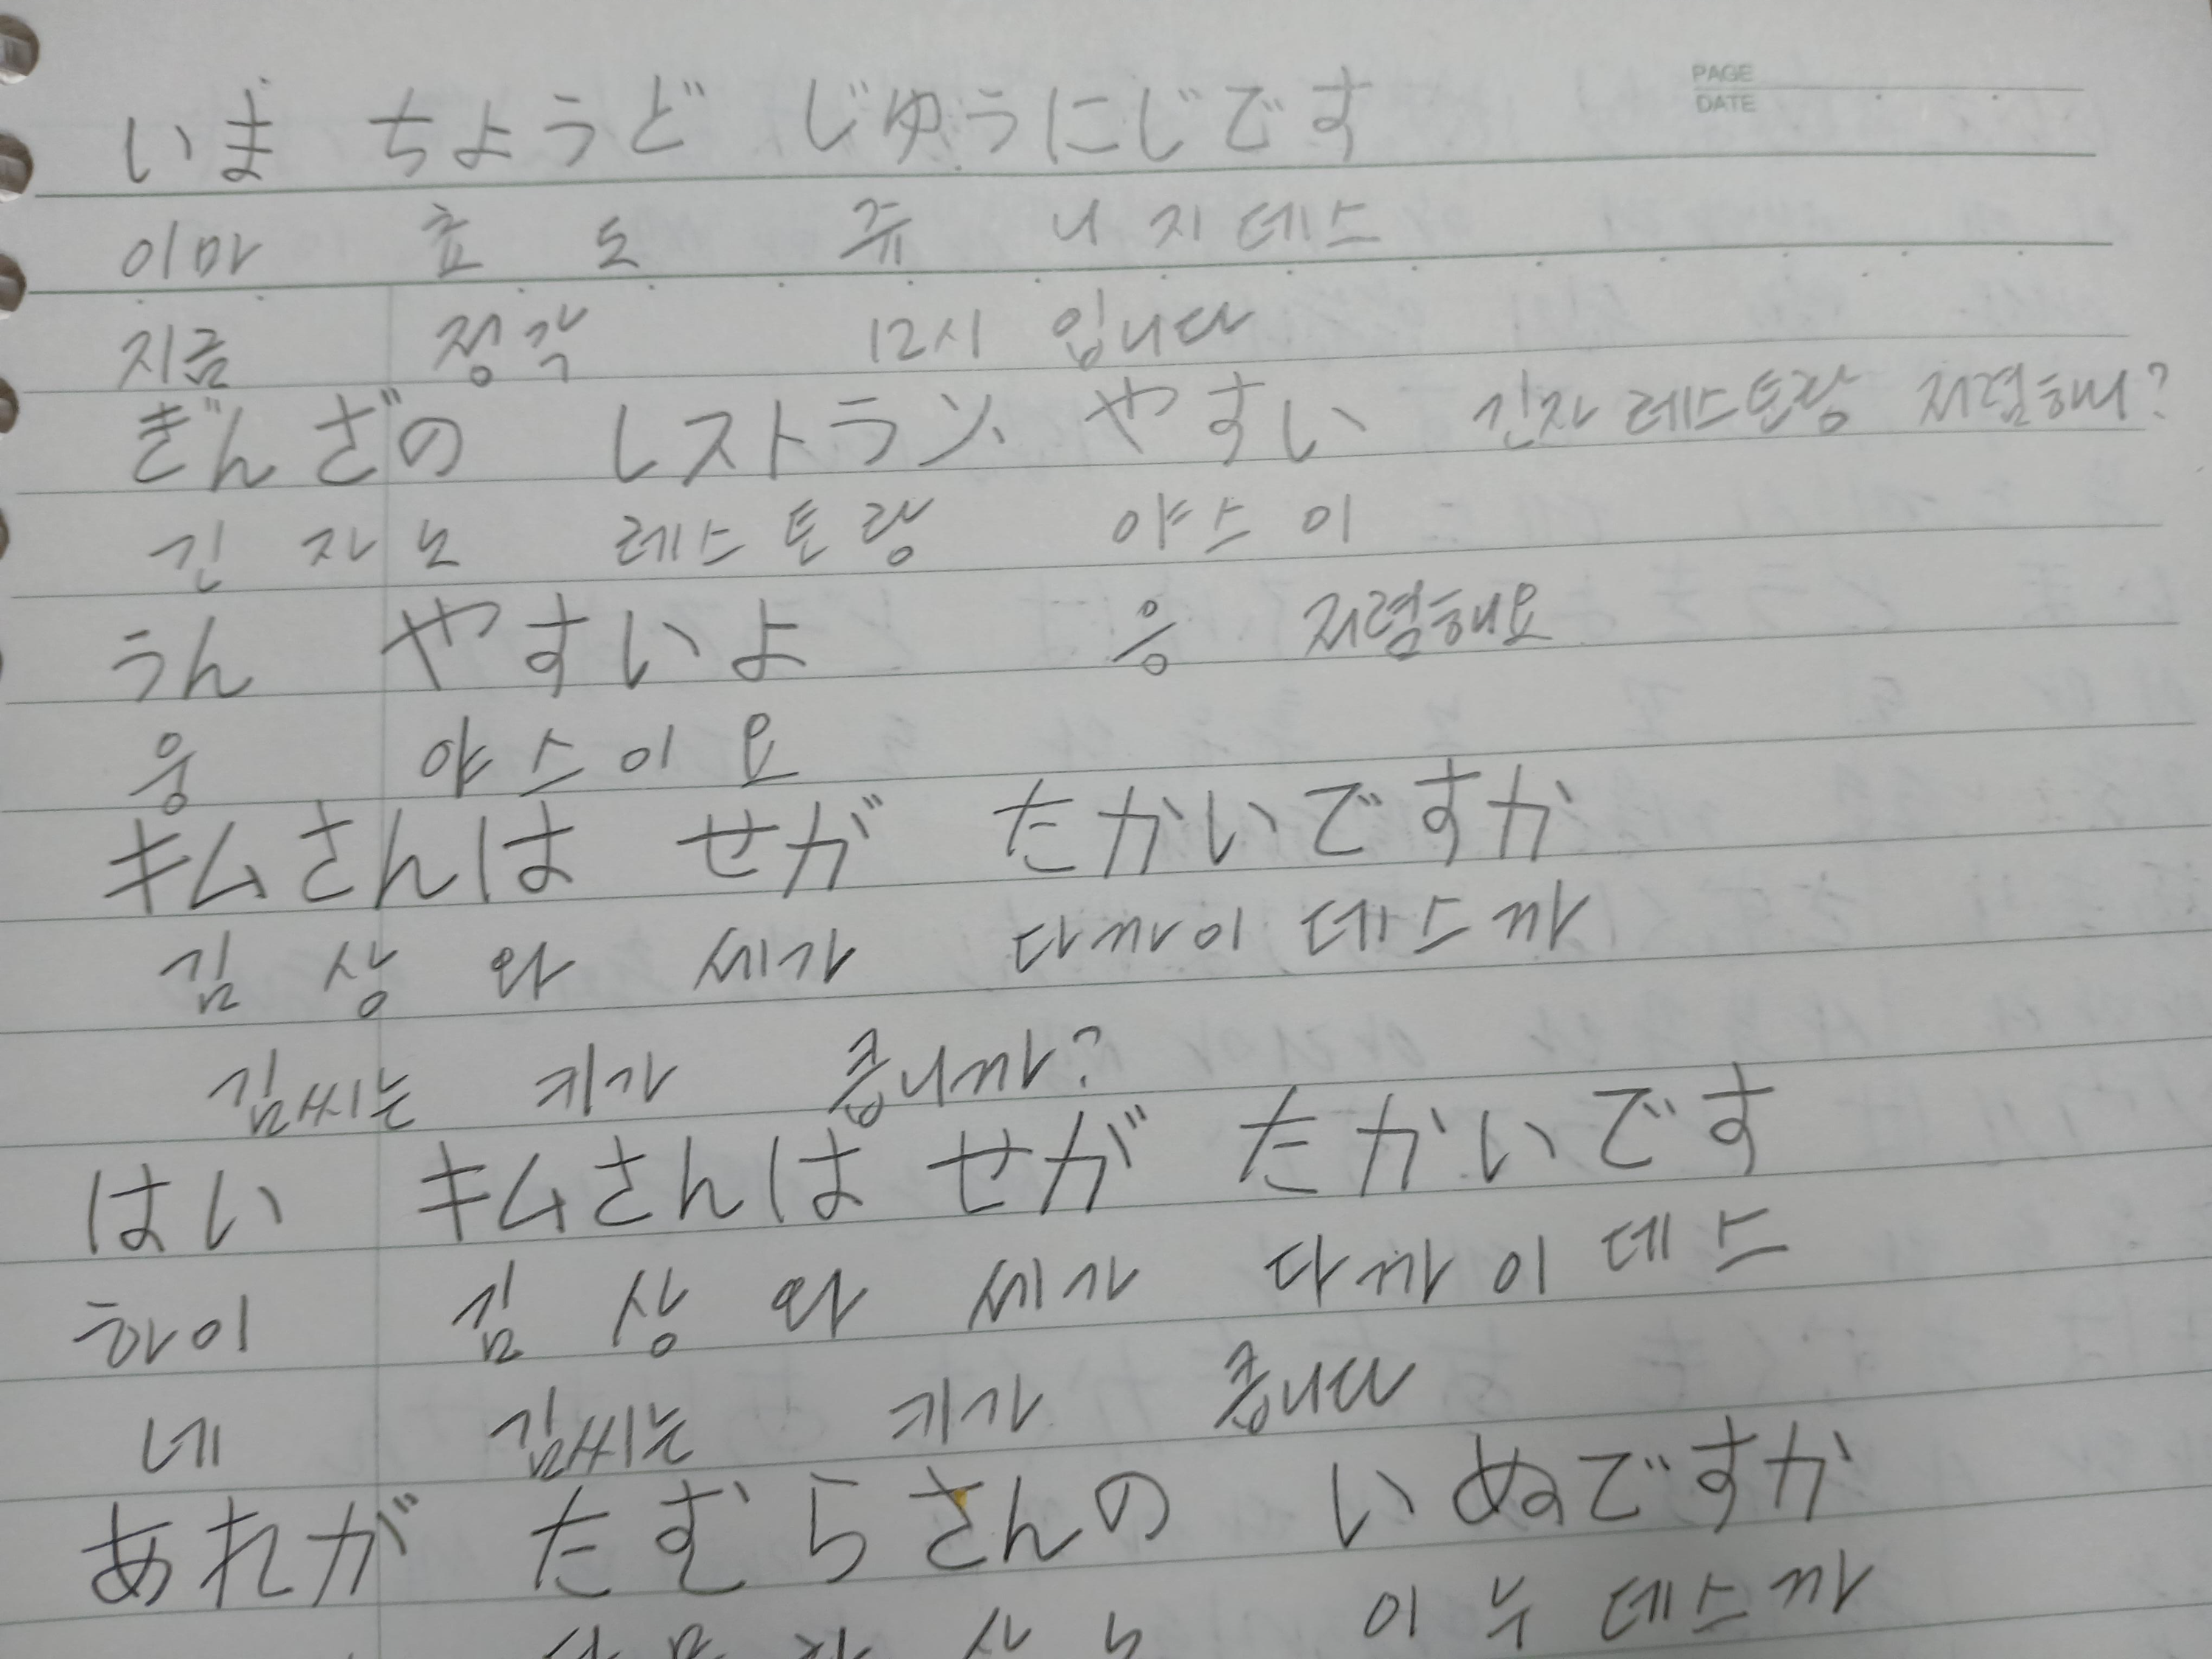 PAGE
DATE
いま ちょうど じゅうにじです
이마 쵸 도 쥬 니 지 데스
지금 정각 12시 입니다
ぎんざの レストラン やすい 긴자 레스토랑 저렴해?
긴 자 노 레스토랑 야스이
うん やすいよ 응 저렴해요
웅 야스이요
キムさんは せが たかいですか
김 상 와 세가 다까이 데스까
김씨는 키가 큽니까?
はい キムさんは せが たかいです
하이 김 상 와 세가 다까이 데스
네 김씨는 키가 큽니다
あれが たむらさんの いぬですか
이 누 데스까